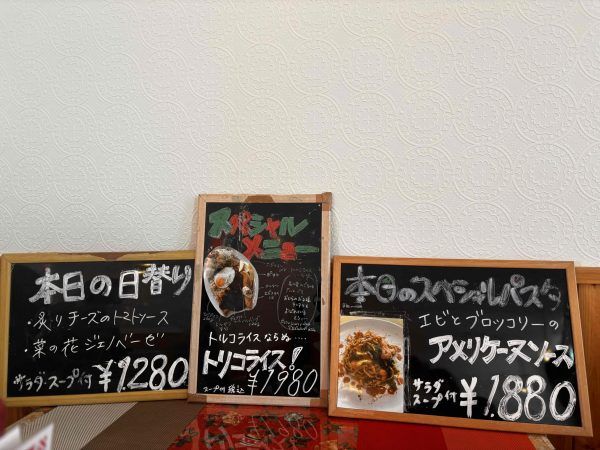 本日の日替り
・炙りチーズのトマトソース
・菜の花ジェノベーゼ
サラダ・スープ付 ¥1280
スペシャル
メニュー
トルコライスならぬ....
トリコライス!
スープ付 税込 ¥1980
本日のスペシャルパスタ
エビとブロッコリーの
アメリケーヌソース
サラダ
スープ付 ¥1.880